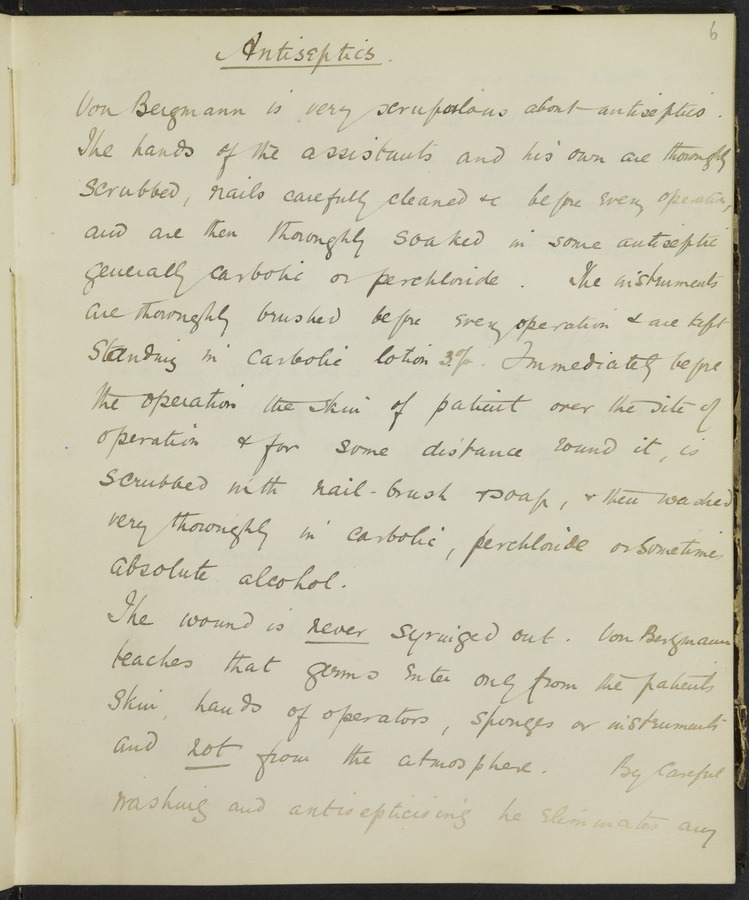 6
Antiseptics.
Von Bergmann is very scrupulous about antiseptics.
The hands of the assistants and his own are thoroughly
scrubbed, nails carefully cleaned &c before every operation,
and are then thoroughly soaked in some antiseptic
generally carbolic or perchloride. The instruments
are thoroughly brushed before every operation & are kept
standing in carbolic lotion 3%. Immediately before
the operation the skin of patient over the site of
operation & for some distance round it, is
scrubbed with nail-brush & soap, & then washed
very thoroughly in carbolic, perchloride or sometimes
absolute alcohol.
The wound is never syringed out. Von Bergmann
teaches that germs enter only from the patients
skin, hands of operators, sponges or instruments
and not from the atmosphere. By careful
washing and antisepticising he eliminates any